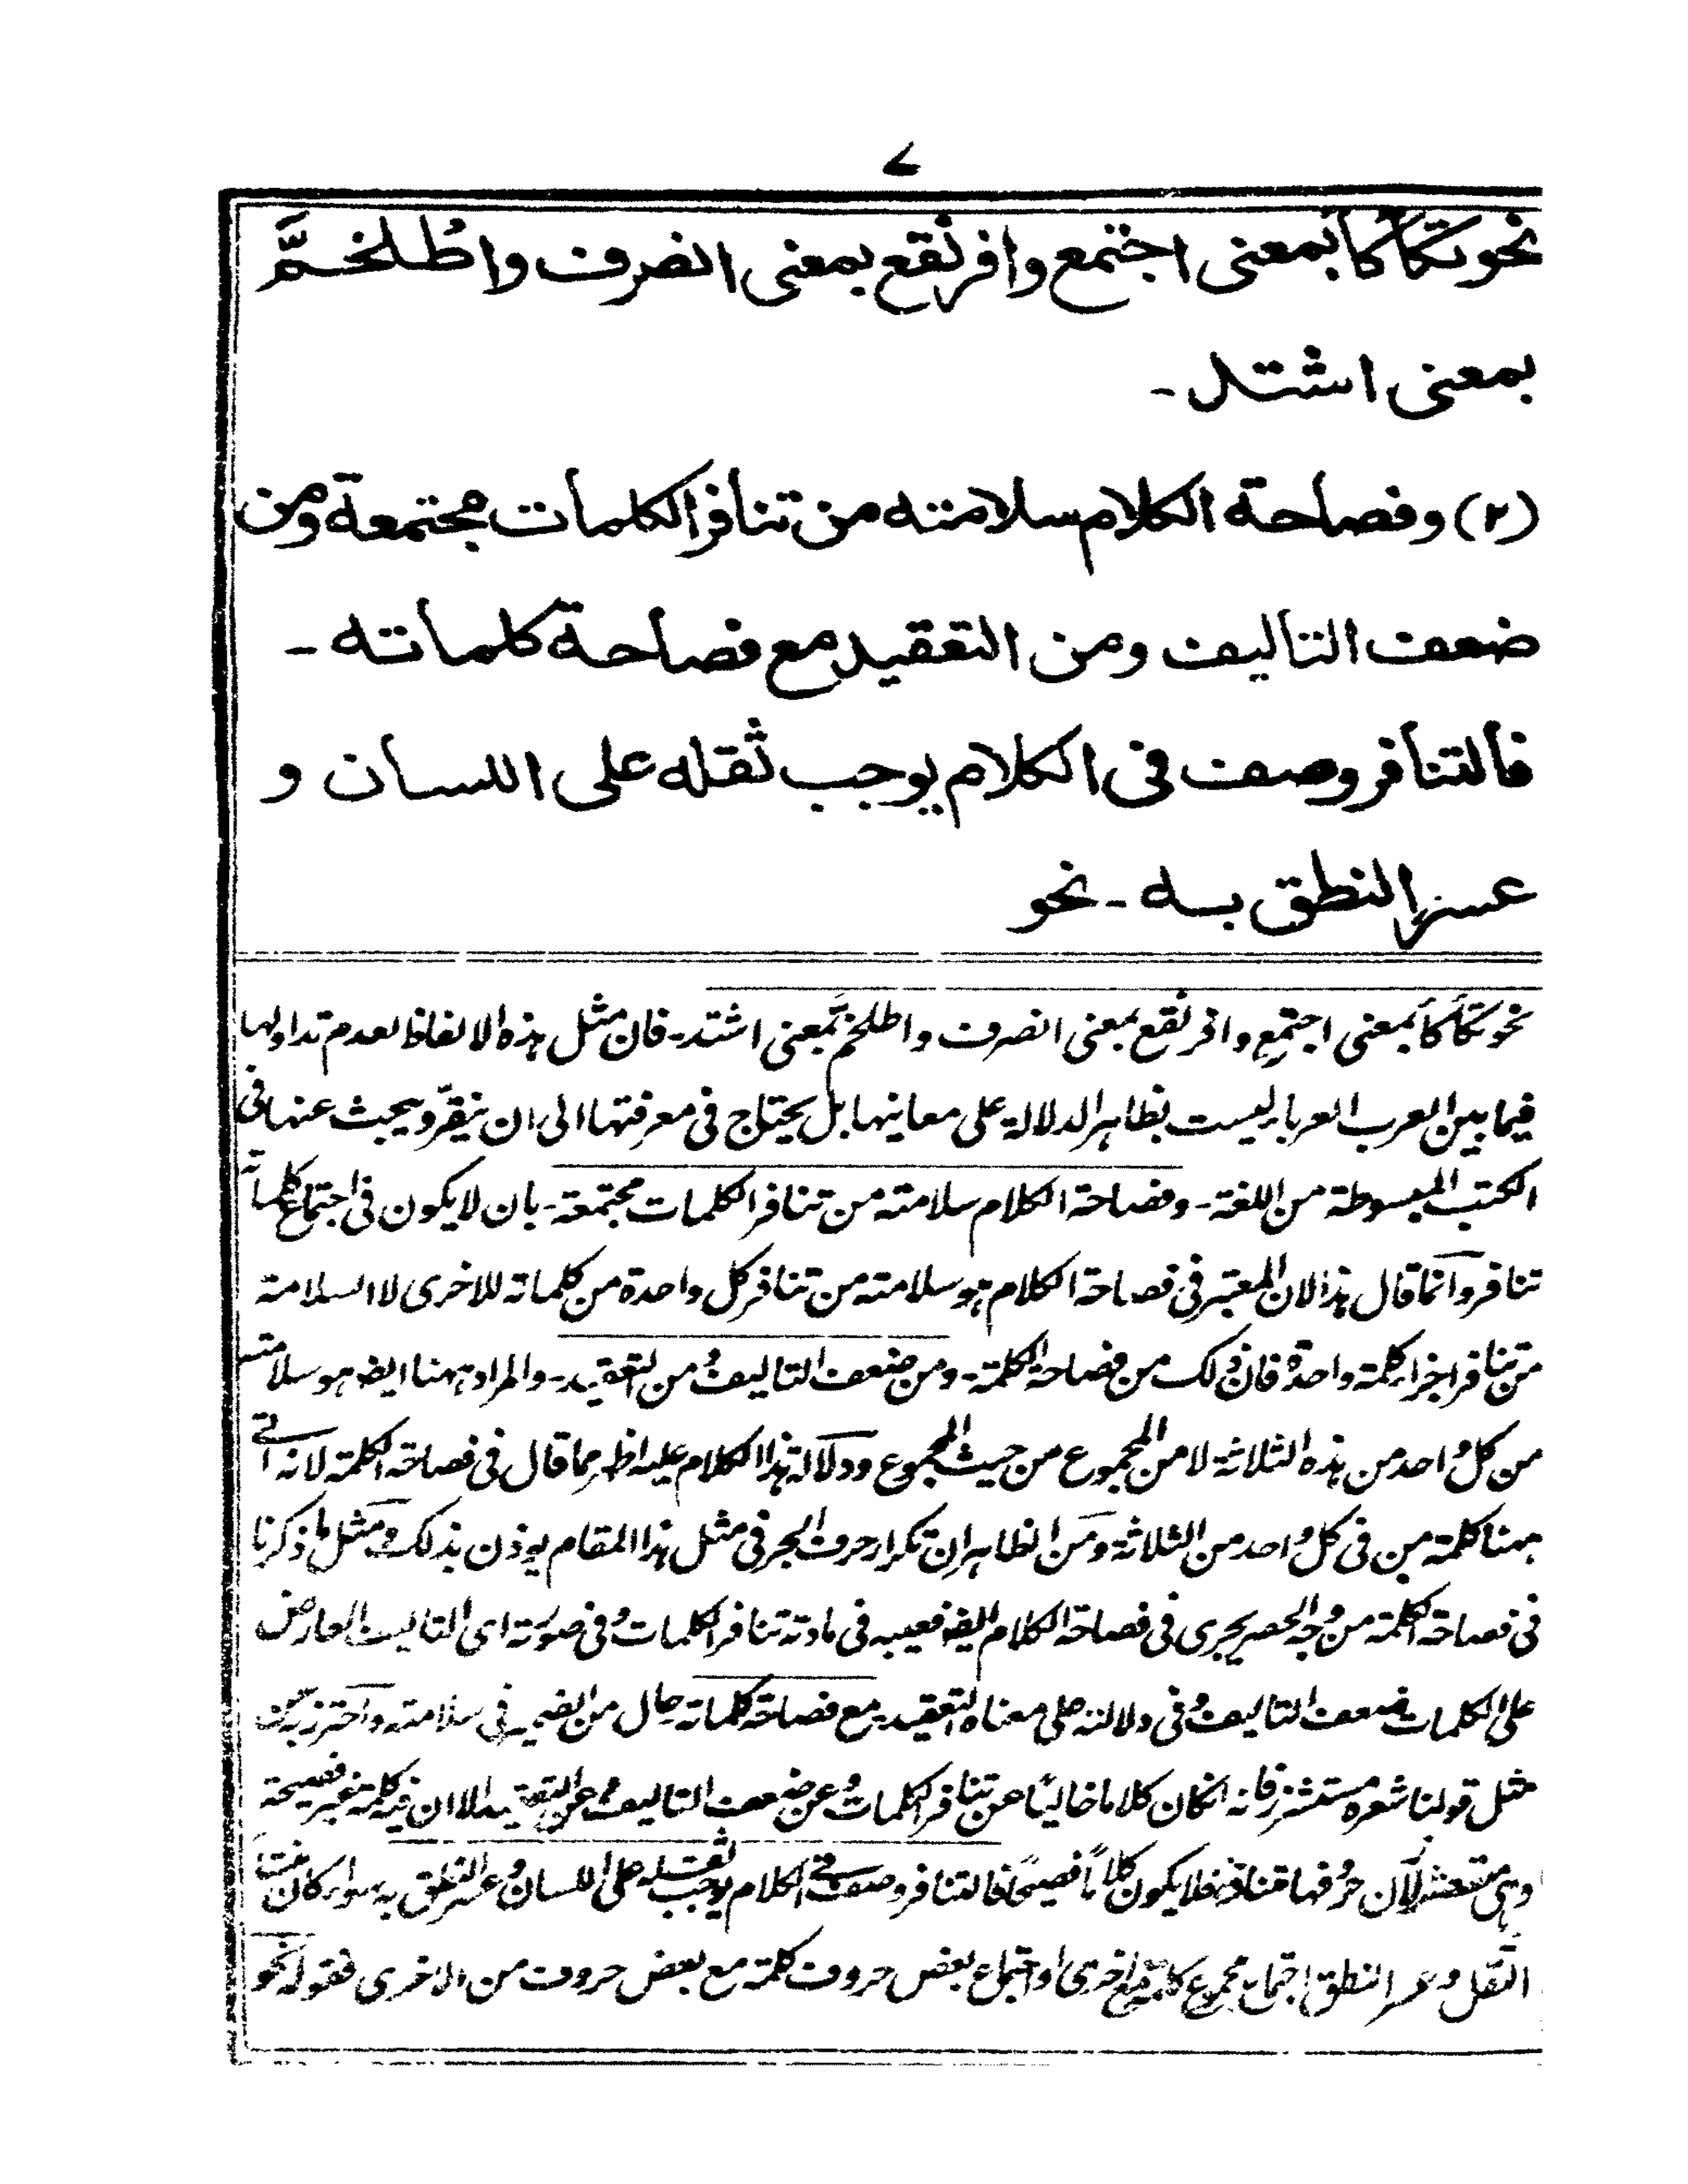 ٧
نحو تكأكأ بمعنى اجتمع وافرنقع بمعنى انصرف واطلخمَّ
بمعنى اشتد -
(٢) وفصاحة الكلام سلامته من تنافر الكلمات مجتمعة ومن
ضعف التاليف ومن التعقيد مع فصاحة كلماته -
فالتنافر وصف في الكلام يوجب ثقله على اللسان و
عسر النطق به - نحو
نحو تكأكأ بمعنى اجتمع وافرنقع بمعنى انصرف واطلخمَّ بمعنى اشتد - فان مثل هذه الالفاظ لعدم تداولها
فيما بين العرب العرباء ليست بظاهر الدلالة على معانيها بل يحتاج في معرفتها الى ان ينقرّ ويبحث عنها في
الكتب المبسوطة من اللغة - وفصاحة الكلام سلامته من تنافر الكلمات مجتمعة - بان لا يكون في اجتماع كلماته
تنافر وانما قال هذا لان المعتبر في فصاحة الكلام هو سلامته من تنافر كل واحدة من كلماته للاخرى لا السلامة
من تنافر اجزاء كلمة واحدة فان ذلك من فصاحة الكلمة - ومن ضعف التاليف ومن التعقيد - والمراد ههنا ايضا هو سلامته
من كل واحد من هذه الثلاثة لا من المجموع من حيث المجموع ودلالة هذا الكلام عليه اظهر مما قال في فصاحة الكلمة لانه اتى
ههنا كلمة من في كل واحد من الثلاثة ومن الظاهر ان تكرار حرف الجر في مثل هذا المقام يوذن بذلك ومثل ما ذكرنا
في فصاحة الكلمة من وجه الحصر يجرى في فصاحة الكلام ايضا فعيبه في مادته تنافر الكلمات وفي صورته اى التاليف العارض
على الكلمات ضعف التاليف وفي دلالته على معناه التعقيد - مع فصاحة كلماته حال من الضمير في سلامته واحترز به عن
مثل قولنا شعره مستشزر فانه انكان كلاما خاليًا عن تنافر الكلمات وعن ضعف التاليف وعن التعقيد الا ان فيه كلمة غير فصيحة
وهي مستشزر لان حروفها متنافرة فلا يكون كلاماً فصيحًا فالتنافر وصف في الكلام يوجب ثقله على اللسان وعسر النطق به سواء كان
الثقل وعسر النطق اجتماع مجموع كلمة مع اخرى او اجتماع بعض حروف كلمة مع بعض حروف من الاخرى فقوله نحو